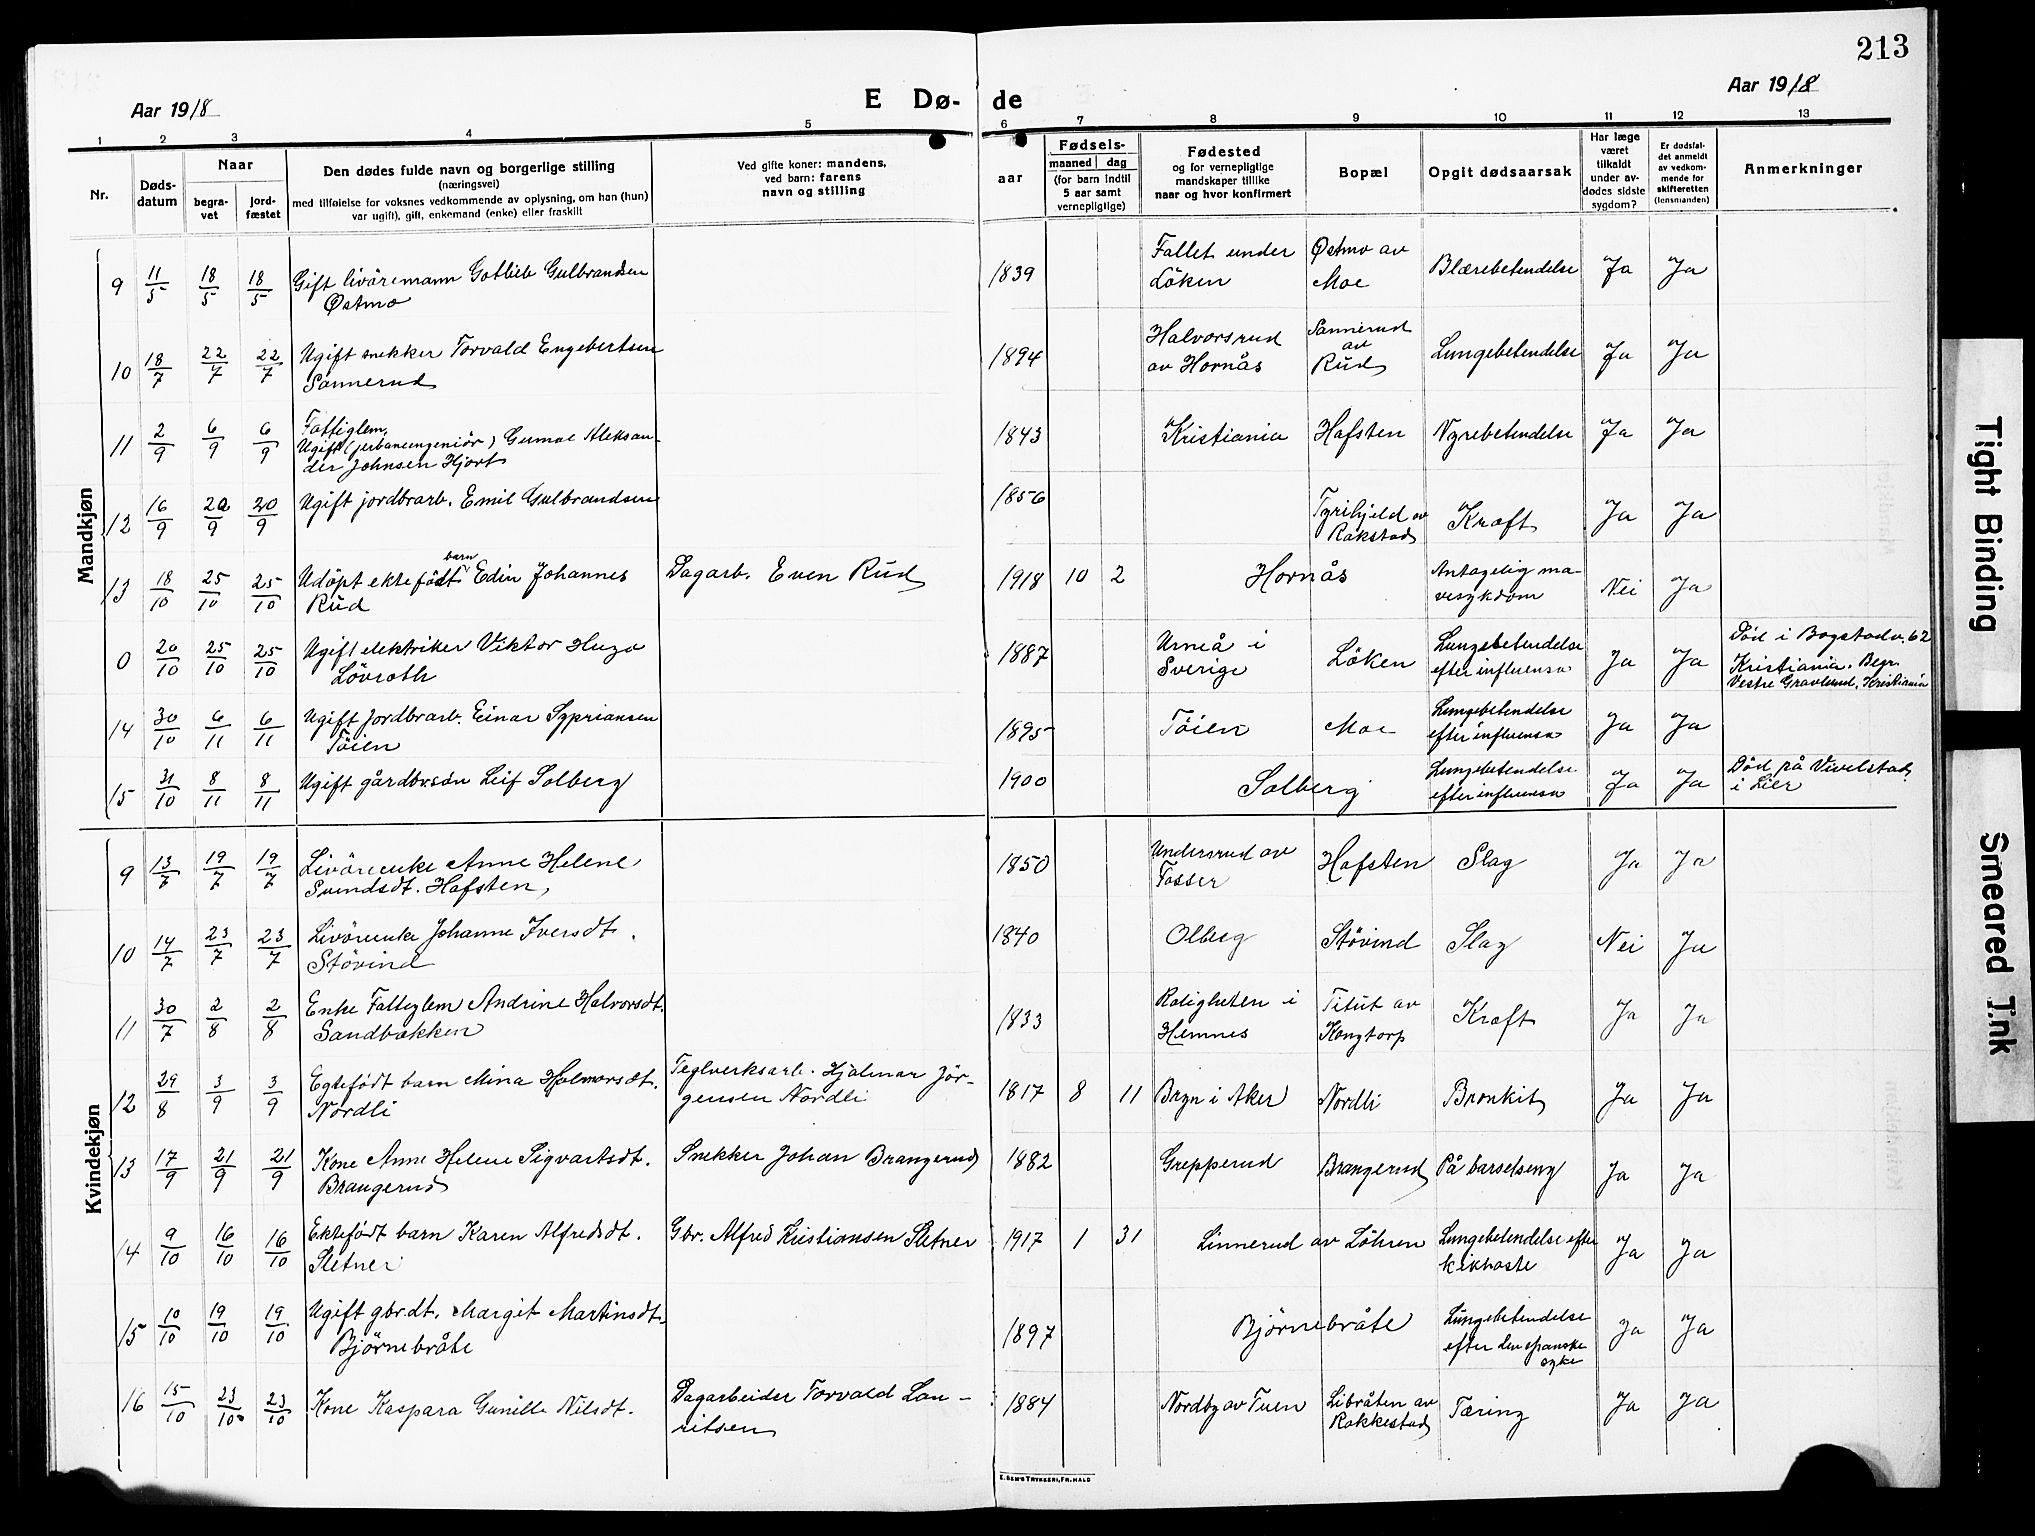 213
Aar 1918
E Dø- de
Aar 1918
1 2 3 4 5 6 7 8 9 10 11 12 13
Nr.
Døds-
datum
Naar
begra-
vet
jord-
fæstet
Den dødes fulde navn og borgerlige stilling
(næringsvei)
med tilføielse for voksnes vedkommende av oplysning, om han (hun)
var ugift), gift, enkemand (enke) eller fraskilt
Ved gifte koner: mandens,
ved barn: farens
navn og stilling
aar
Fødsels-
maaned dag
(for barn indtil
5 aar samt
vernepligtige)
Fødested
og for vernepligtige
mandskaper tillike
naar og hvor konfirmert
Bopæl
Opgit dødsaarsak
Har læge
været
tilkaldt
under av-
dødes sidste
sygdom?
Er dødsfal-
det anmeldt
av vedkom-
mende for
skifteretten
(lensmanden)
Anmerkninger
Mandkjøn
9 11/5 18/5 18/5 Gift livöremann Gotlieb Gulbrandsen 1839 Fallet under Østmo av Blærebetendelse Ja Ja
Østmo Löken Moe
10 18/7 22/7 22/7 Ugift snekker Torvald Engebertsen 1894 Halvorsrud Sannerud Lungebetendelse Ja Ja
Sannerud av Hornås av Rud
11 2/9 6/9 6/9 Fattiglem, 1843 Kristiania Hafsten Nyrebetendelse Ja Ja
Ugift (jerbaneingeniör) Gumal Aleksan-
der Johnsen Hjort
12 16/9 20/9 20/9 Ugift jordbrarb. Emil Gulbrandsen 1856 Tyrihjeld av Kræft Ja Ja
Rakstad
13 18/10 25/10 25/10 Udöpt ektefödt barn Edin Johannes Dagarb. Even Rud 1918 10 2 Hornås Antagelig ma- Nei Ja
Rud vesykdom
0 20/10 25/10 25/10 Ugift elektriker Viktor Hugo 1887 Umeå i Löken Lungebetendelse Ja Ja Död i Bogstadv. 62
Lövroth Sverige efter influensa Kristiania. Begr.
Vestre Gravlund, Kristiania
14 30/10 6/11 6/11 Ugift Jordbrarb. Einar Sypriansen 1895 Töien Moe Lungebetendelse Ja Ja
Töien efter influensa
15 31/10 8/11 8/11 Ugift gårdbr.sön Leif Solberg 1900 Solberg Lungebetendelse Ja Ja Död på Vivelstad
efter influensa i Lier
Kvindekjøn
9 13/7 19/7 19/7 Livörenke Anne Helene 1850 Undersrud av Hafsten Slag Ja Ja
Svendsdt. Hafsten, Fosser
10 14/7 23/7 23/7 Livörenke Johanne Iversdt. 1840 Olberg Stövind Slag Nei Ja
Stövind
11 30/7 2/8 2/8 Enke Fattiglem Andrine Halvorsdt. 1833 Roligheten i Titut av Kræft Ja Ja
Sandbækken Hemnes Kongtorp
12 29/8 3/9 3/9 Egtefödt barn Mina Halmarsdt. Teglverksarb. Hjalmar Jör- 1817 8 11 Bryn i Aker Nordli Bronkit Ja Ja
Nordli gensen Nordli
13 17/9 21/9 21/9 Kone Anne Helene Sigvartsdt. Snekker Johan Brangerud 1882 Grepperud Brangerud På barselseng Ja Ja
Brangerud
14 9/10 16/10 16/10 Ektefödt barn Karen Alfredsdt. Gbr. Alfred Kristiansen Sletner 1917 1 31 Linnerud av Löhren Lungebetendelse efter Ja Ja
Sletner kikhoste
15 10/10 19/10 19/10 Ugift gbr.dt. Margit Martinsdt. 1897 Bjørnebråte Lungebetendelse Ja Ja
Bjørnebråte efter den spanske
syke
16 15/10 23/10 23/10 Kone Kaspara Gunille Nilsdt. Dagarbeider Torvald Lau- 1884 Nordby av Tuen Libråten av Tæring Ja Ja
ritsen Rakkestad
E. SEM'S TRYKKERI, FR.HALD
Tight Binding
Smeared Ink